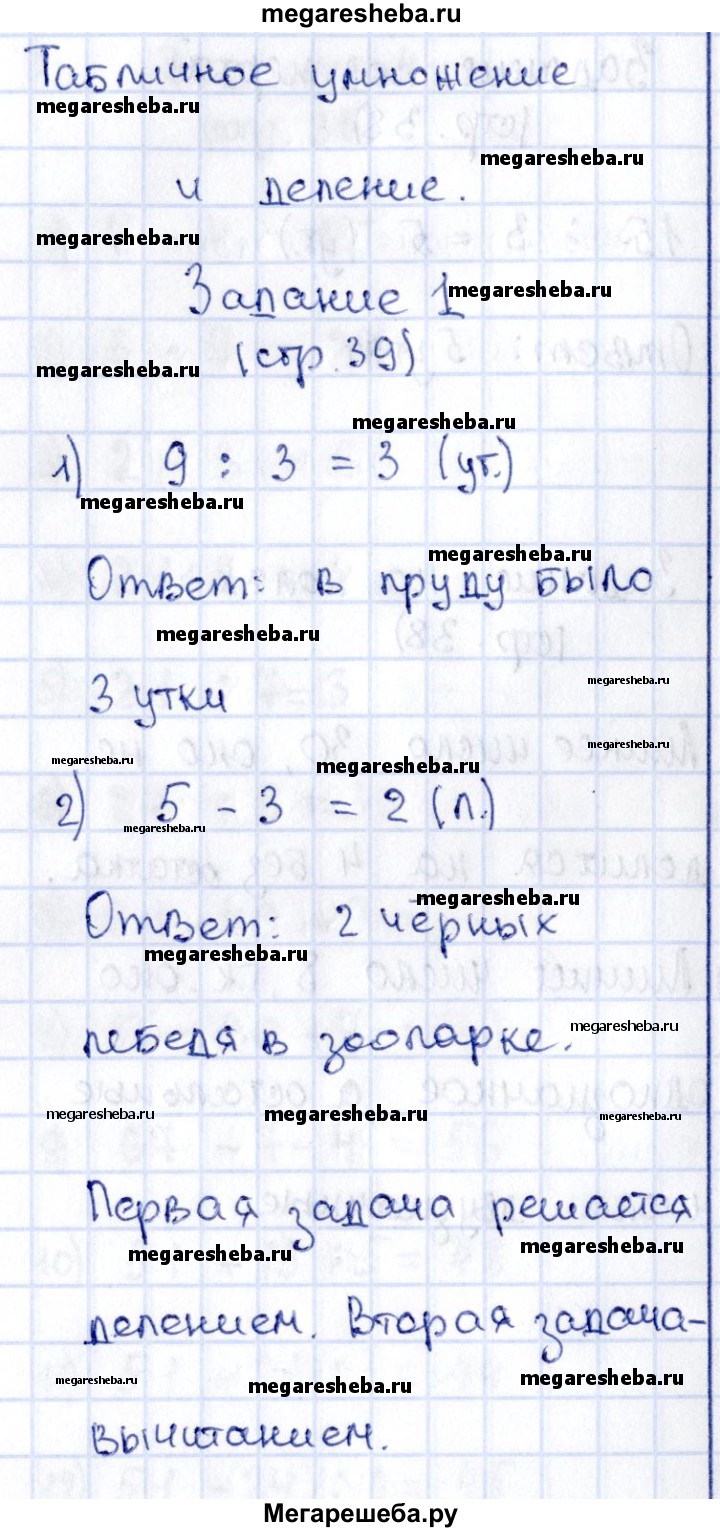 megaresheba.ru
Табличное умножение
megaresheba.ru
megaresheba.ru
и деление.
megaresheba.ru
Задание 1
megaresheba.ru
(стр. 39)
megaresheba.ru
megaresheba.ru
1) 9 : 3 = 3 (ут.)
megaresheba.ru
megaresheba.ru
Ответ: в пруду было
megaresheba.ru
megaresheba.ru
3 утки
megaresheba.ru
megaresheba.ru
megaresheba.ru
2) 5 - 3 = 2 (л.)
megaresheba.ru
megaresheba.ru
Ответ: 2 чёрных
megaresheba.ru
megaresheba.ru
лебедя в зоопарке.
megaresheba.ru
megaresheba.ru
megaresheba.ru
Первая задача решается
megaresheba.ru
megaresheba.ru
делением. Вторая задача-
megaresheba.ru
megaresheba.ru
megaresheba.ru
вычитанием.
Мегарешеба.ру